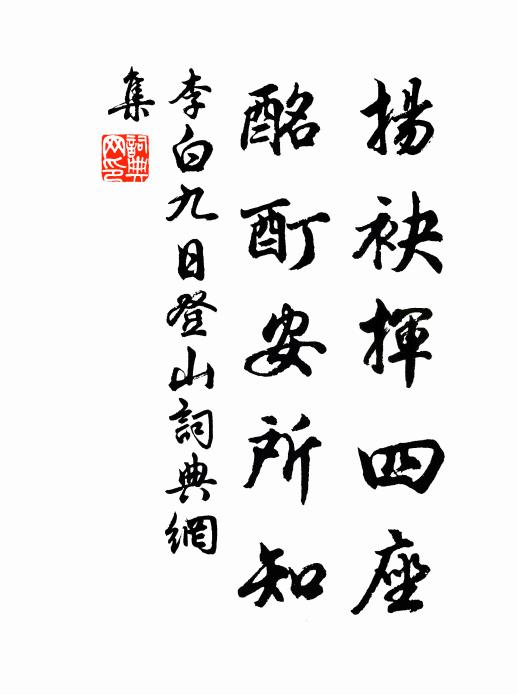 揚袂揮四座
酩酊安所知
李白九日登山詞典網
集
詞典
网印